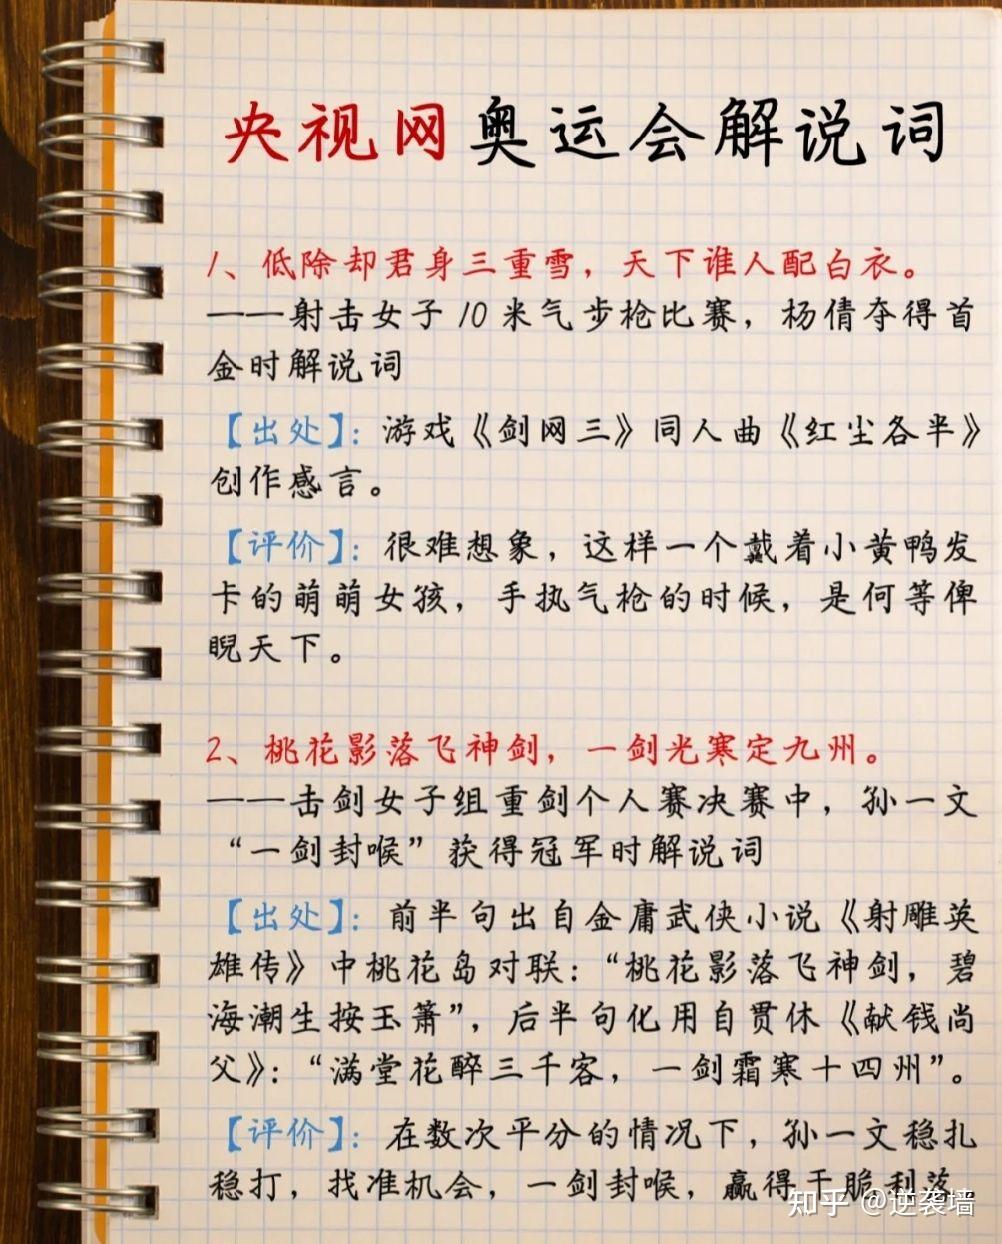 央视网奥运会解说词
1、低除却君身三重雪，天下谁人配白衣。
——射击女子10米气步枪比赛，杨倩夺得首
金时解说词
【出处】：游戏《剑网三》同人曲《红尘各半》
创作感言。
【评价】：很难想象，这样一个戴着小黄鸭发
卡的萌萌女孩，手执气枪的时候，是何等俾
睨天下。
2、桃花影落飞神剑，一剑光寒定九州。
——击剑女子组重剑个人赛决赛中，孙一文
“一剑封喉”获得冠军时解说词
【出处】：前半句出自金庸武侠小说《射雕英
雄传》中桃花岛对联：“桃花影落飞神剑，碧
海潮生按玉箫”，后半句化用自贯休《献钱尚
父》：“满堂花醉三千客，一剑霜寒十四州”。
【评价】：在数次平分的情况下，孙一文稳扎
稳打，找准机会，一剑封喉，赢得干脆利落
知乎 @逆袭墙